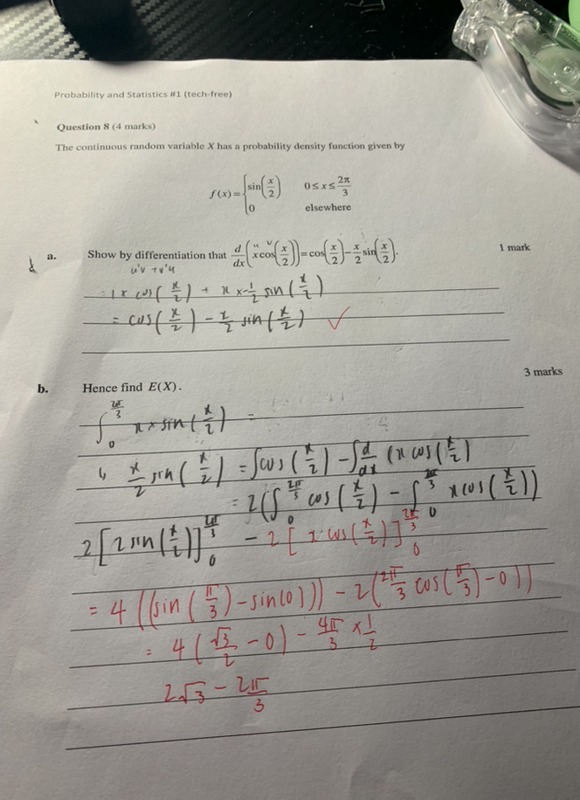 Probability and Statistics #1 (tech-free)
Question 8 (4 marks)
The continuous random variable X has a probability density function given by
f(x) = { sin(x/2) 0 ≤ x ≤ 2π/3
0 elsewhere
a. Show by differentiation that d/dx (x cos(x/2)) = cos(x/2) − x/2 sin(x/2). 1 mark
u v
u'v + v'u
= 1 × cos(x/2) + x × −1/2 sin(x/2)
= cos(x/2) − x/2 sin(x/2) ✓
3 marks
b. Hence find E(X).
∫₀^(2π/3) x × sin(x/2) =
x/2 sin(x/2) = ∫cos(x/2) − ∫d/dx (x cos(x/2)
= 2(∫₀^(2π/3) cos(x/2) − ∫₀^(2π/3) x cos(x/2))
2[2 sin(x/2)]₀^(2π/3) − 2[x cos(x/2)]₀^(2π/3)
= 4((sin(π/3) − sin(0))) − 2(2π/3 cos(π/3) − 0))
= 4(√3/2 − 0) − 4π/3 × 1/2
2√3 − 2π/3